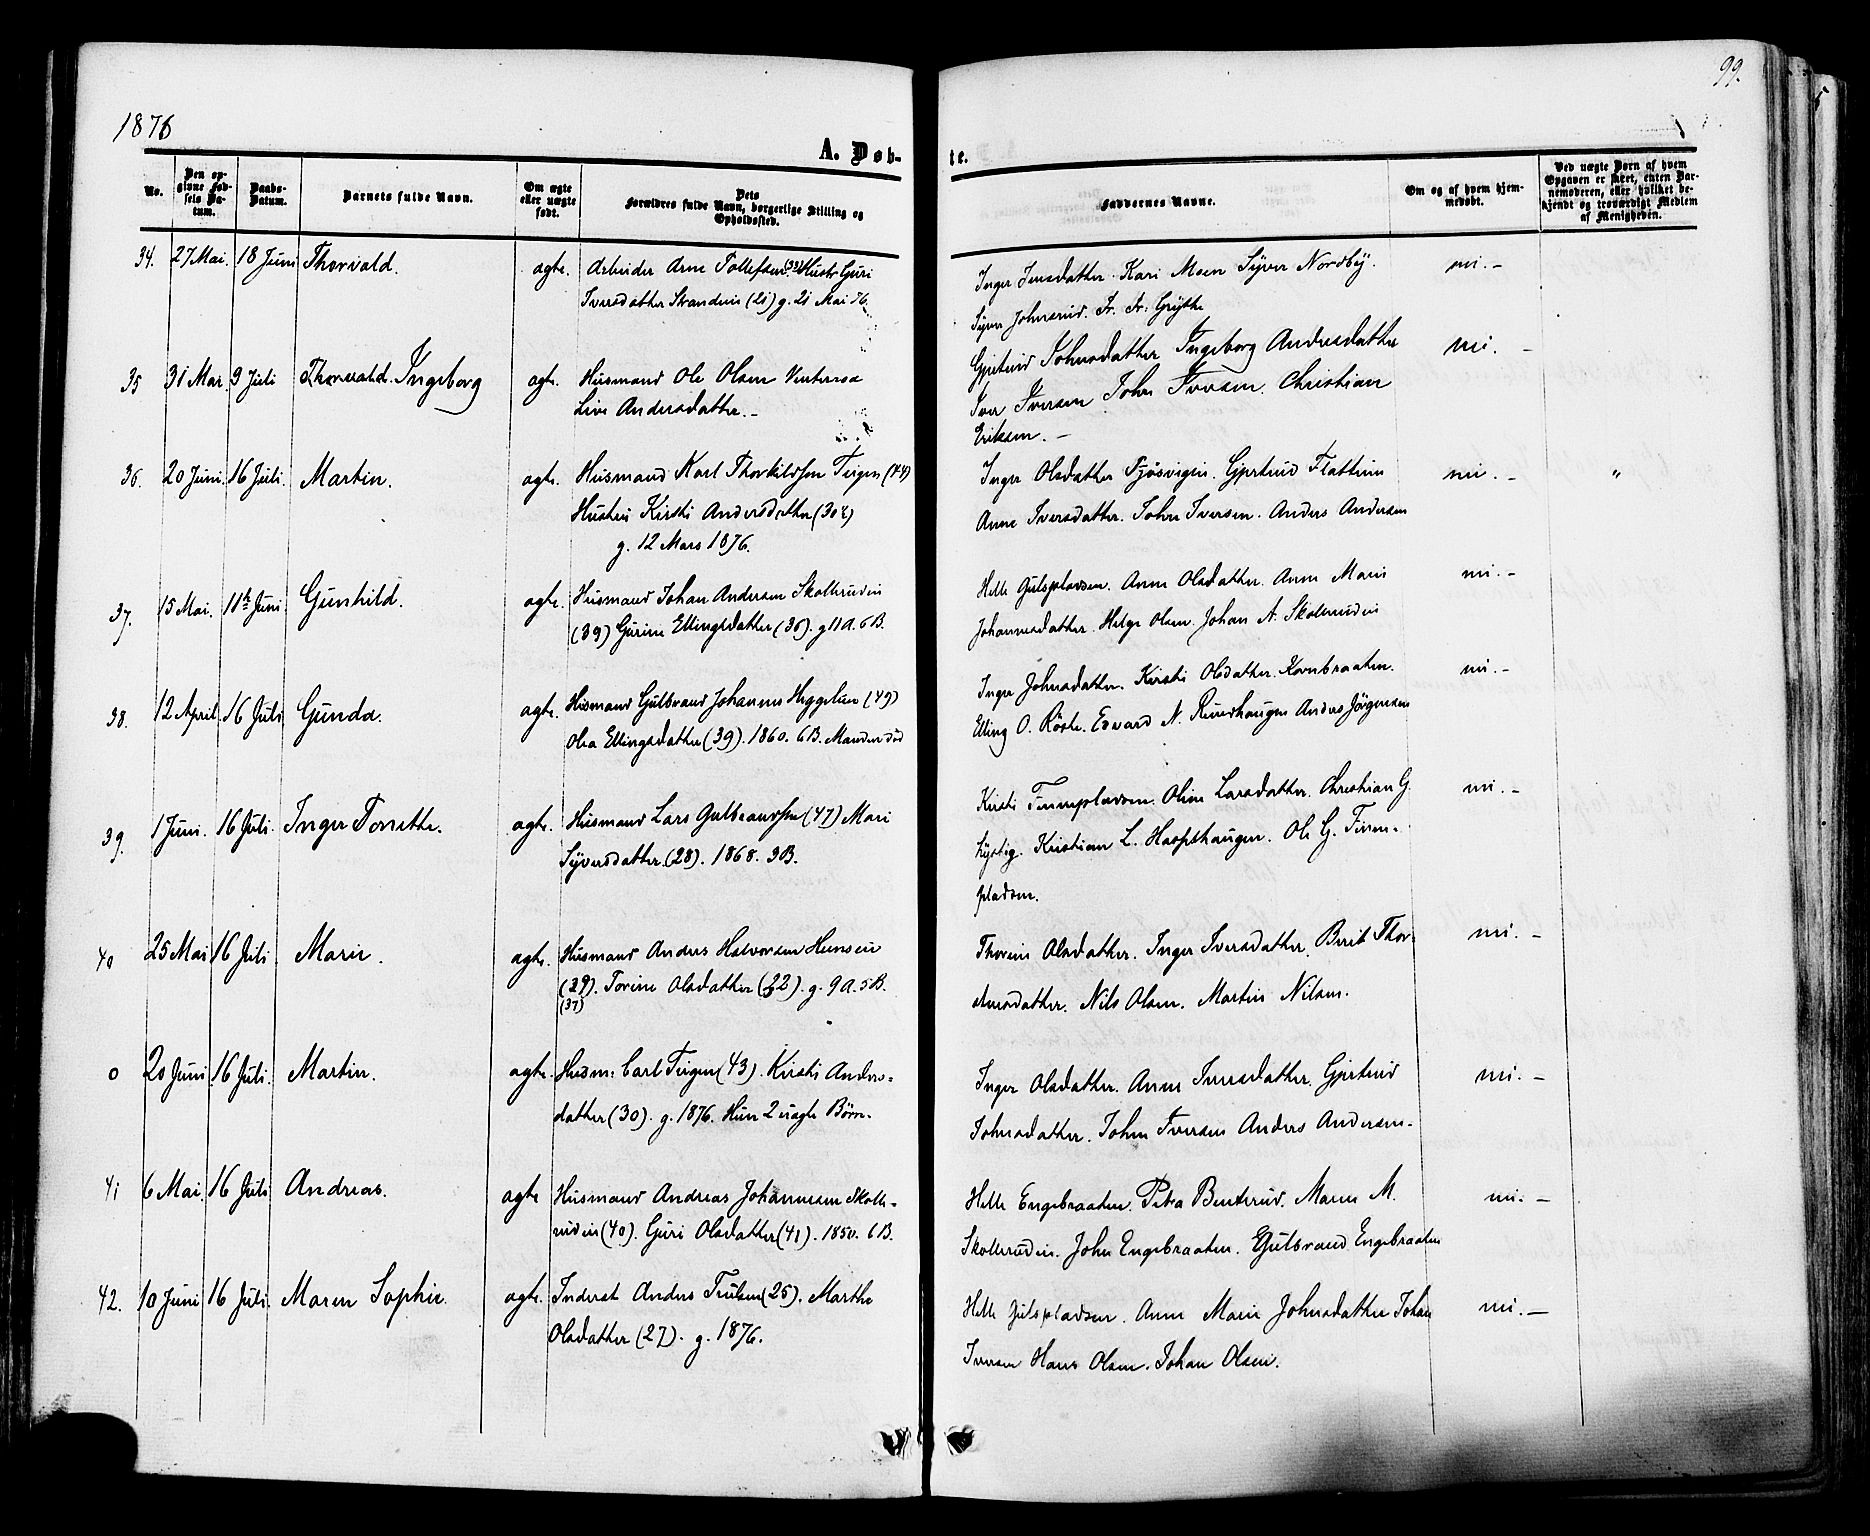 99.
1876
A. Døb-
te.
No.
Den op-
givne Fød-
sels Da-
tum.
Daabs-
Datum.
Barnets fulde Navn.
Om ægte
eller uægte
født.
Dets
Forældres fulde Navn, borgerlige Stilling og
Opholdssted.
Faddernes Navne.
Om og af hvem hjem-
medøbt.
Ved uægte Børn af hvem
Opgaven er skeet, enten Bar-
nemoderen, eller hvilket be-
kjendt og troværdigt Medlem
af Menigheden.
34. 27 Mai. 18 Juni Thorvald. ægte. Arbeider Arne Tollefsen (33) Hustr Guri
Iversdatter Strandeie (21) g. 21 Mai 76.
Inger Jensdatter. Kari Moen Syver Nordby.
Syver Johnsrud. Fr. Fr: Grythe
mi. -
35 31 Mar. 9 Juli Thorvald. Ingeborg ægte. Husmand Ole Olsen
Live Andersdatter. -
Gjertrud Johnsdatter Ingeborg Andersdatter
Iver Iversen John Iversen. Christian
Eriksen. -
mi. -
36. 20 Juni. 16 Juli. Martin. ægte. Husmand Karl Thorkildsen Teigen (44)
Hustru Kirsti Andersdatter (30¾)
g. 12 Mars 1876.
Inger Olsdatter Fjøsvigen. Gjertrud Flattum
Anne Iversdatter. John Iversen. Anders Andersen
mi. - "
37. 15 Mai. 11te Juni. Gunhild. ægte. Husmand Johan Andersen Skollerudeie
(39) Gurine Ellingsdatter (36). g 11 A. 6 B.
Helle Gulspladsen. Anne Olsdatter. Anne Marie
Johannesdatter. Helge Olsen. Johan A. Skollerudeie
mi. -
38. 12 April. 16 Juli Gunda. ægte. Husmand Gulbrand Johannes Heggelien (49)
Olea Ellingsdatter (39). 1860. 6 B. Manden død
Inger Johnsdatter. Kirsti Olsdatter. Kornbraaten.
Elling O. Røste. Edvard N. Ruudhaugen Anders Jørgensen
mi. -
39. 1 Juni. 16 Juli. Inger Torrette. ægte. Husmand Lars Gulbrandsen (47) Mari
Syversdatter (28). 1868. 3 B.
Kirsti Finnepladsen. Oline Larsdatter. Christian G.
Lystig. Kristian L. Haspehaugen. Ole G. Finne-
pladsen.
mi. -
40 25 Mai 16 Juli Marie. ægte. Husmand Anders Halvorsen Hunseie
(29). Torine Olsdatter (32). g. 9 A. 5 B.
(37)
Thorine Olsdatter. Inger Iversdatter. Berit Thor-
stensdatter. Nils Olsen. Martin Nilsen.
mi. -
0 20 Juni 16 Juli. Martin. ægte. Husm: Carl Teigen (43). Kirsti Anders-
datter (30). g. 1876. Hun 2 uægte Børn.
Inger Olsdatter. Anne Iversdatter. Gjertrud
Johnsdatter. John Iversen Anders Andersen.
mi. -
41 6 Mai. 16 Juli Andreas. ægte Husmand Andreas Johannesen Skolle-
rudeie (40). Guri Olsdatter (41). 1850. 6 B.
Helle Engebraaten. Petra Benterud. Maren M.
Skollerudeie. John Engebraaten. Gulbrand Engebraaten
mi. -
42. 10 Juni 16 Juli. Maren Sophie. ægte. Inderst Anders Trulsen (25). Marthe
Olsdatter (27). g. 1876.
Helle Gulspladsen. Anne Marie Johnsdatter Johan
Iversen Hans Olsen. Johan Olsen.
mi. -